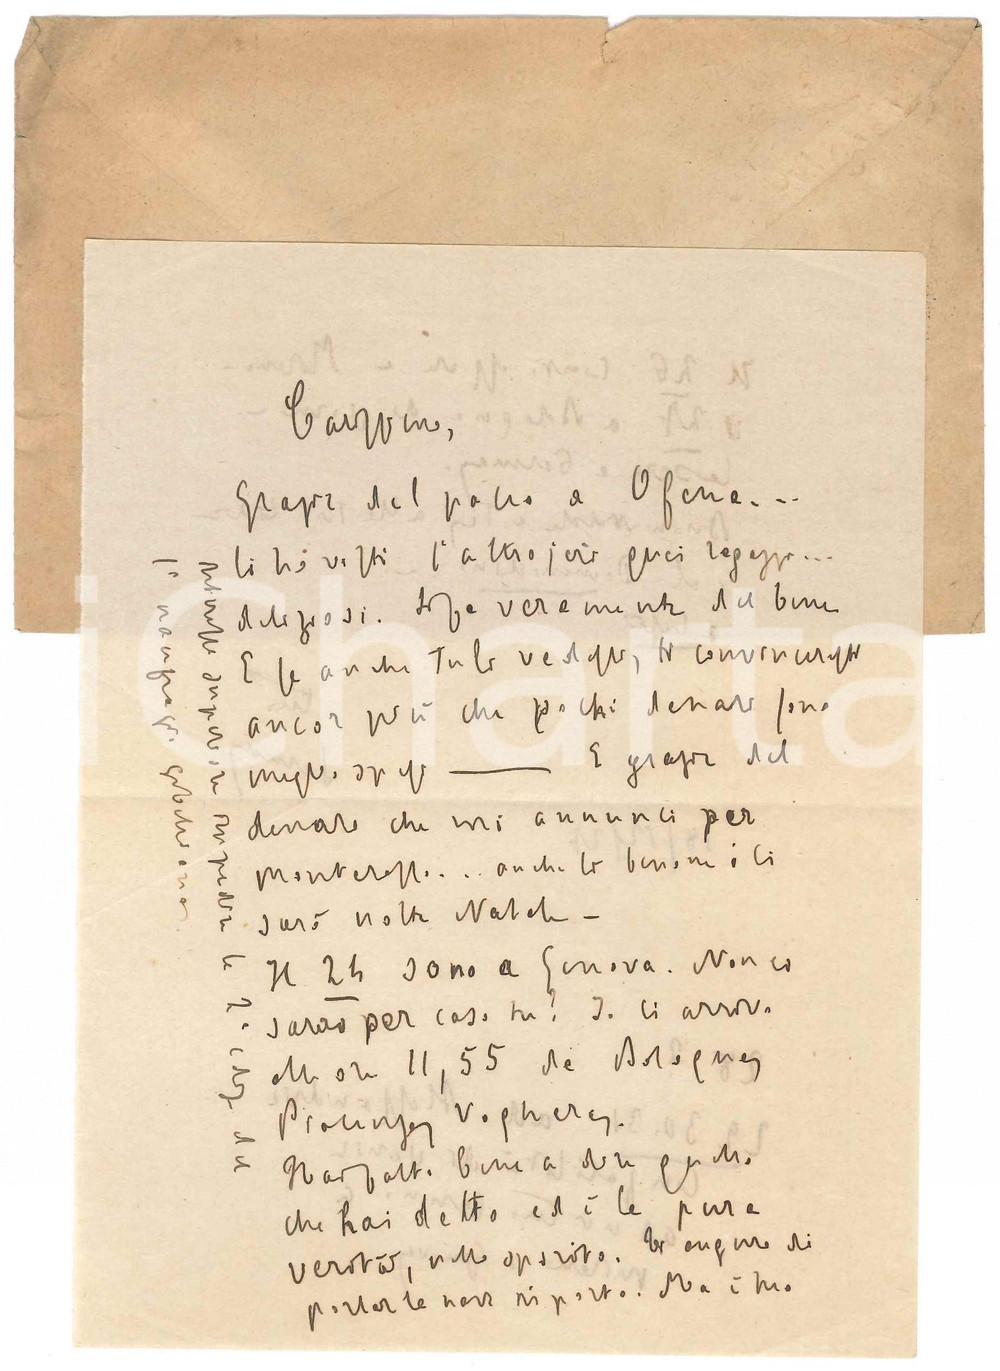 Carissimo,
Grazie del pacco a Ofena...
li hò visti l'altro ieri quei ragazzi...
deliziosi. Sofa veramente del bene
E se anche Tu li vedessi, ti convinceresti
ancor più che pochi denari sono
meglio spesi — E grazie del
denaro che mi annunci per
anche lì benone è lì
sarò notte Natale —
Il 24 sono a Genova. Non ci
sarai per caso tu? Io ci arrivo
alle ore 11,55 da Bologna,
Piacenza, Voghera,.
Hai fatto bene a dire quello
che hai detto ed è la pura
verità, nello spirito.
portarle non importa. Ma è
iCharta